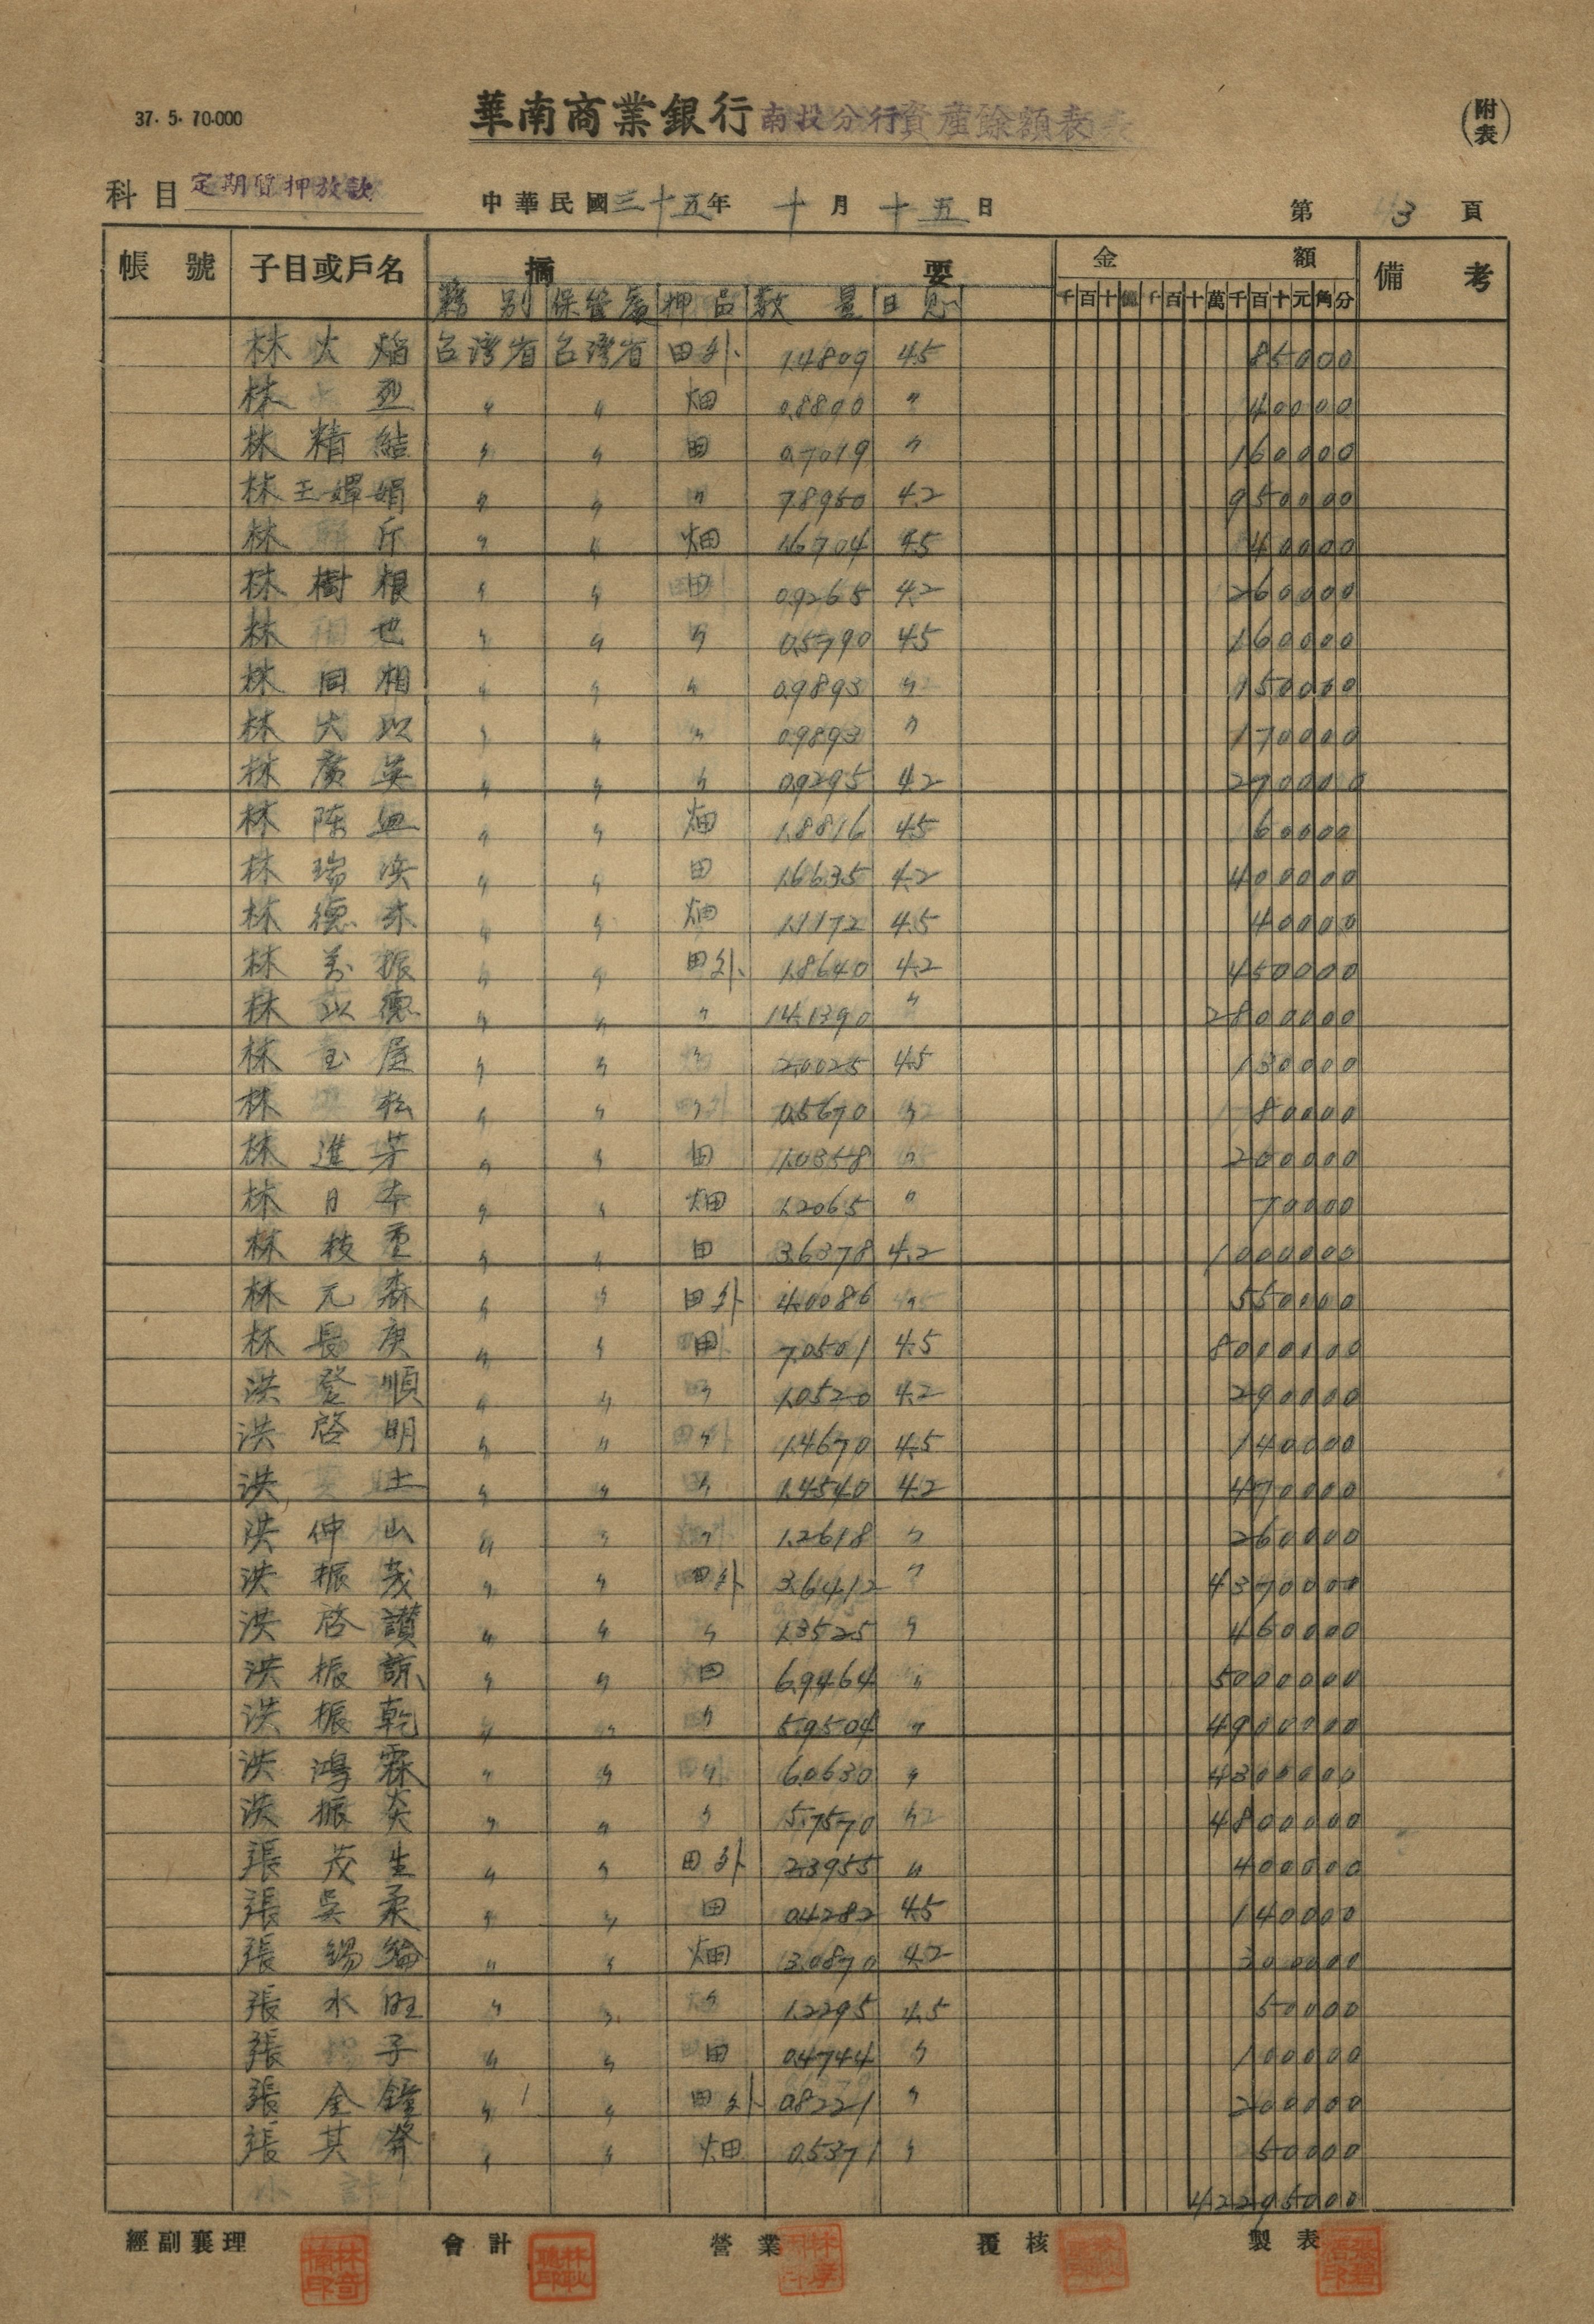 37. 5. 70.000
華南商業銀行南投分行資產餘額表
(附表)
科目 定期質押放款 中華民國三十五年 十月 十五日 第 3 頁
帳號 子目或戶名 摘要 金額 備考
籍別 保管處 押品 數量 日息 千百十億千百十萬千百十元角分
林火焰 台灣省 台灣省 田外 1.4809 4.5 85000
林 烈 〃 〃 畑 0.8800 〃 40000
林精結 〃 〃 田 0.7019 〃 160000
林王嬋娟 〃 〃 〃 7.8950 4.2 950000
林 斤 〃 〃 畑 1.6704 4.5 40000
林樹根 〃 〃 田 0.9265 4.2 260000
林 也 〃 〃 〃 0.5790 4.5 160000
林同相 〃 〃 〃 0.9893 〃 150000
林火 〃 〃 〃 0.9893 〃 170000
林廣英 〃 〃 〃 0.9295 4.2 270000
林陈 〃 〃 畑 1.8816 4.5 60000
林瑞 〃 〃 田 1.6635 4.2 400000
林德 〃 〃 畑 1.1172 4.5 40000
林萬振 〃 〃 田外 1.8640 4.2 450000
林以德 〃 〃 〃 14.1390 〃 2800000
林玉屋 〃 〃 〃 2.0025 4.5 130000
林 松 〃 〃 〃 0.5670 〃 80000
林進芳 〃 〃 田 1.0358 〃 200000
林日本 〃 〃 畑 1.2065 〃 70000
林枝重 〃 〃 田 3.6378 4.2 1000000
林元森 〃 〃 田外 4.0086 〃 550000
林長庚 〃 〃 田 7.0501 4.5 8000000
洪登順 〃 〃 〃 1.0520 4.2 290000
洪啓明 〃 〃 〃 1.4670 4.5 140000
洪 土 〃 〃 〃 1.4540 4.2 470000
洪仲山 〃 〃 〃 1.2618 〃 260000
洪振茂 〃 〃 田外 3.6412 〃 4370000
洪啓讃 〃 〃 〃 1.3525 〃 460000
洪振諒 〃 〃 田 6.9464 〃 5000000
洪振乾 〃 〃 〃 5.9504 〃 4900000
洪鴻霖 〃 〃 〃 6.0630 〃 4300000
洪振炎 〃 〃 〃 5.7570 〃 4800000
張茂生 〃 〃 田外 2.3955 〃 400000
張吳柔 〃 〃 田 0.4282 4.5 140000
張錫綸 〃 〃 畑 3.0870 4.2 300000
張水旺 〃 〃 〃 1.2295 4.5 50000
張 子 〃 〃 田 0.4744 〃 100000
張全鐘 〃 〃 田外 0.8221 〃 200000
張其 〃 〃 畑 0.5371 〃 50000
小計 42295000
經副襄理 會計 營業 覆核 製表